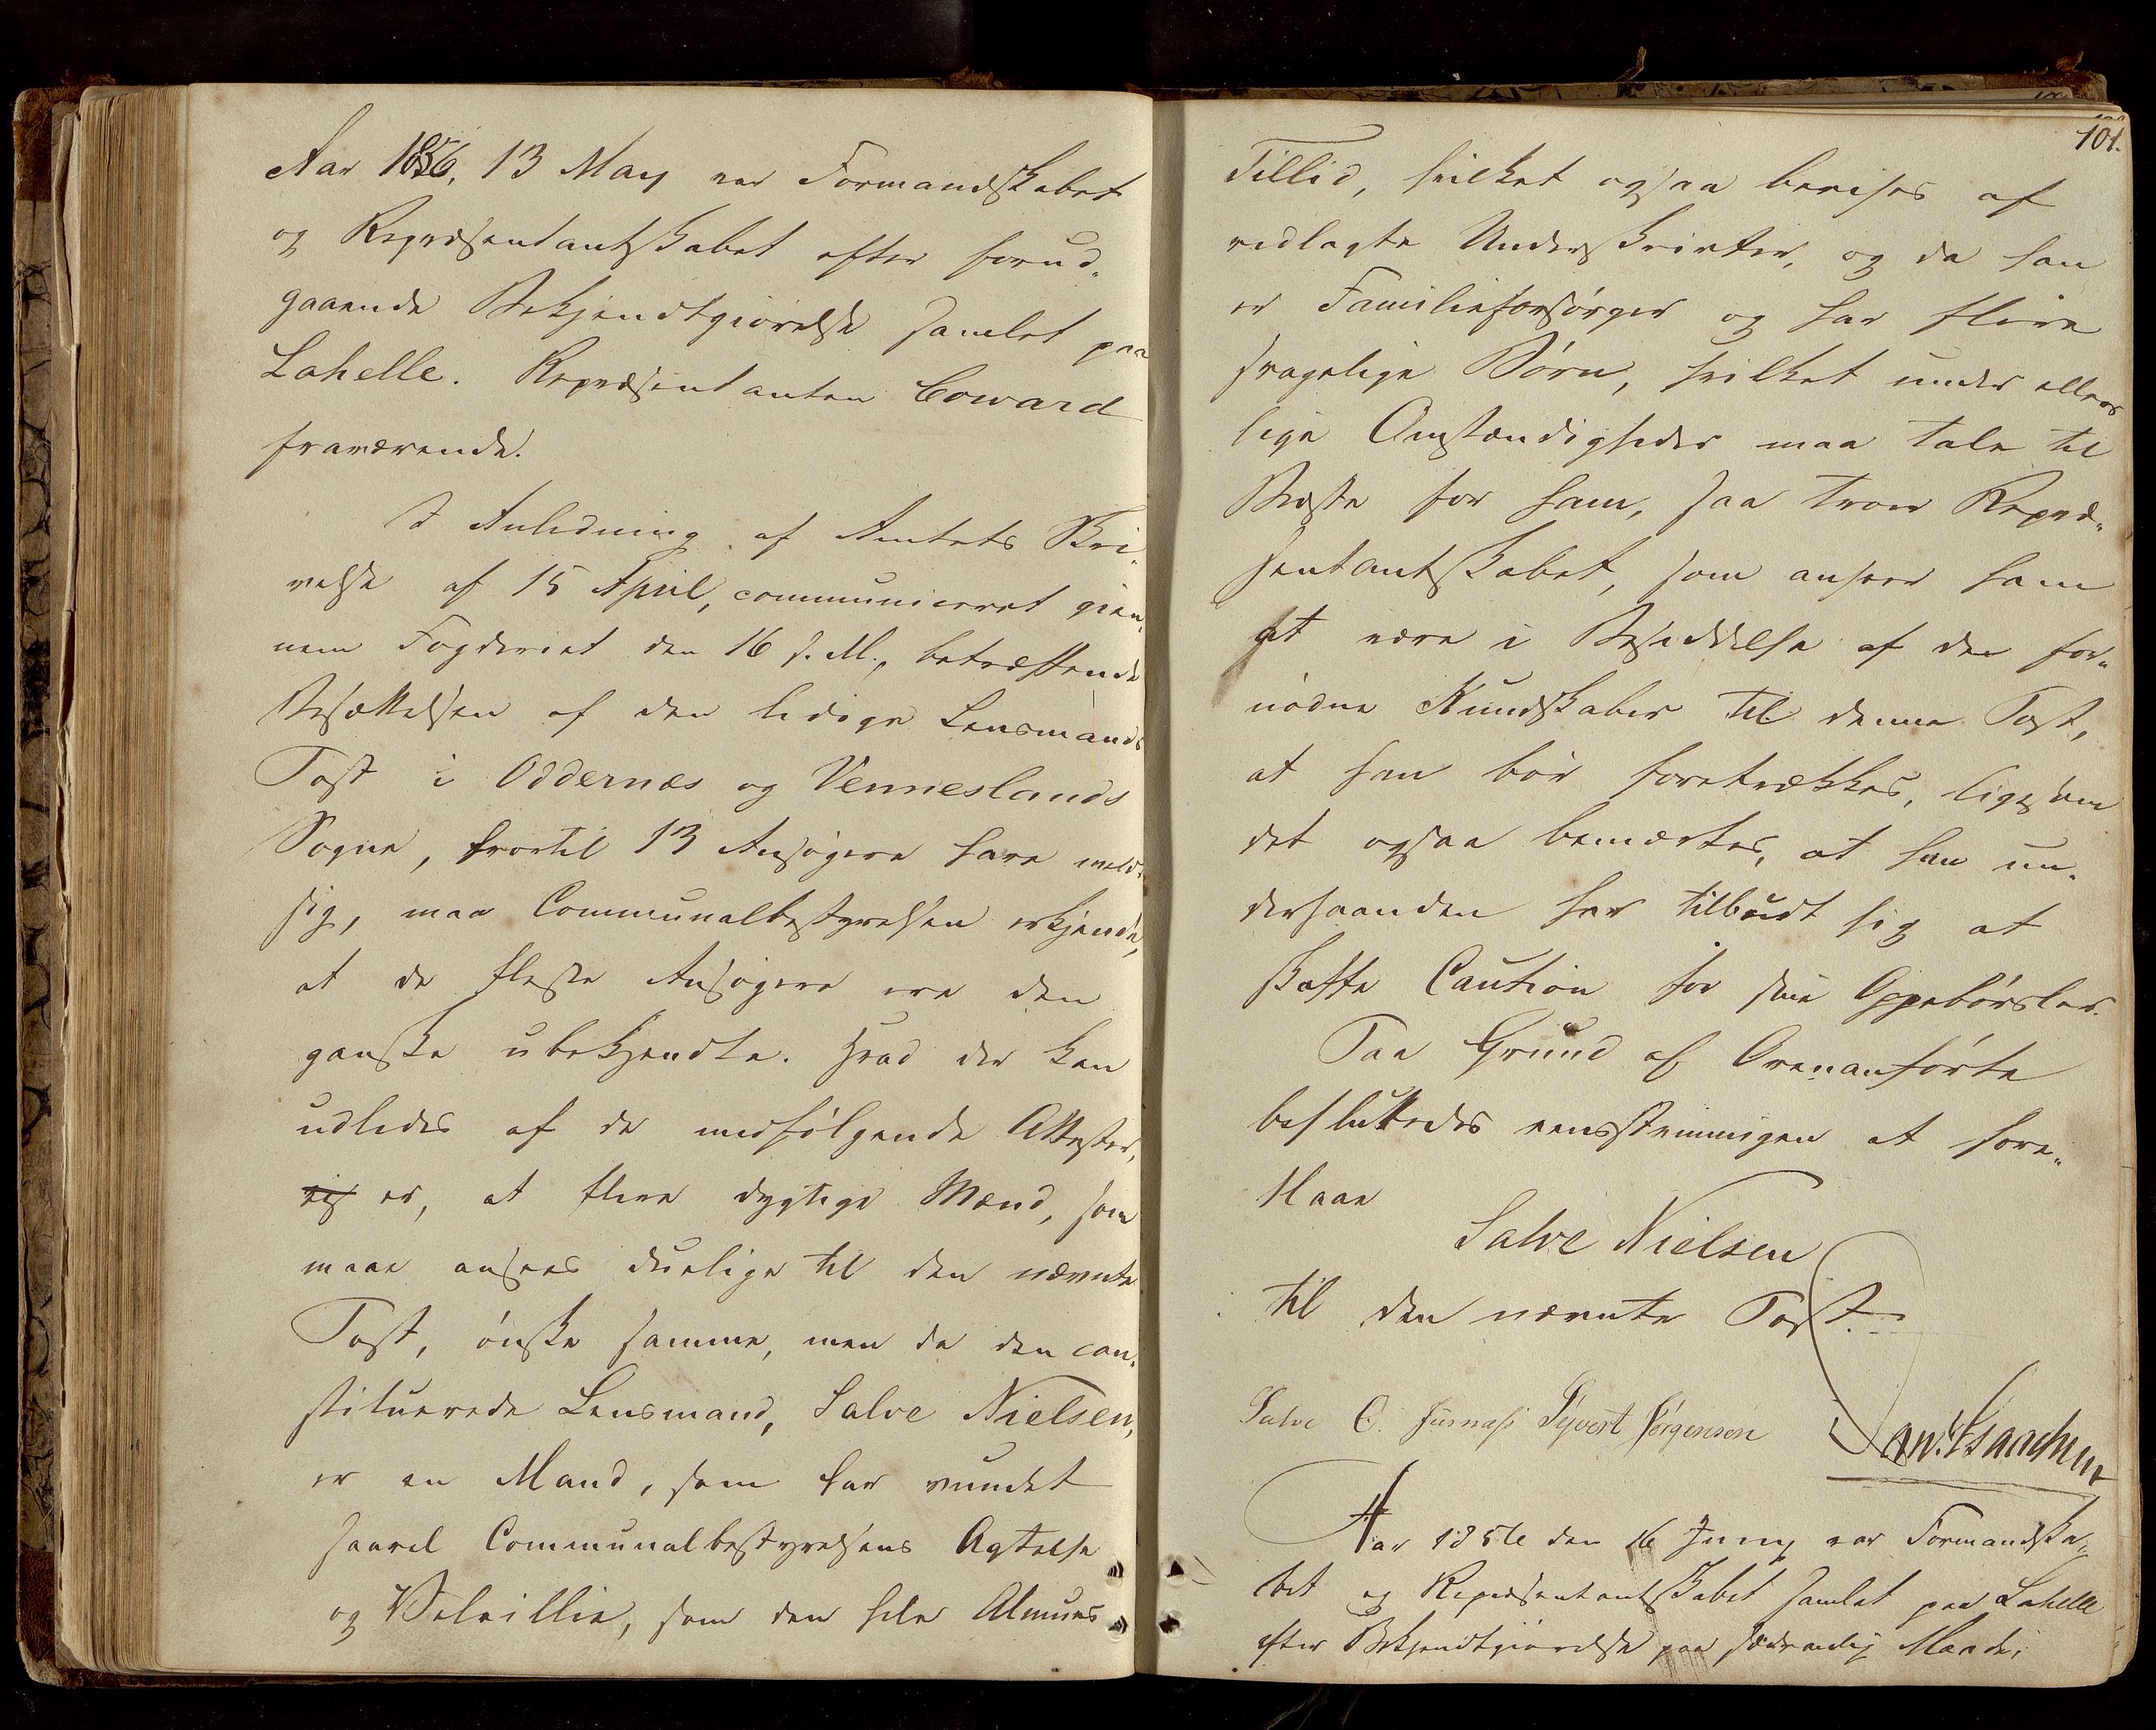 Aar 1856, 13 May var Formandskabet
og Repræsentantskabet efter forud-
gaaende Bekjendtgiørelse samlet paa
Lahelle. Repræsentanten Coward
fraværende.
I Anledning af Amtets Skri-
velse af 15 April, communiceret gien-
nem Fogderiet den 16 s. M., betræffende
Besættelsen af den ledige Lensmands
Post i Oddernæs og Venneslands
Sogne, hvortil 13 Ansøgere have meldt
sig, maa Communalbestyrelsen erkjende,
at de fleste Ansøgere ere den
ganske ubekjendte. Hvad der kan
udledes af de medfølgende Attester,
er, at flere dygtige Mænd, som
maae ansees duelige til den nævnte
Post, ønske samme, men da den con-
stituerede Lensmand, Salve Nielsen,
er en Mand, som har vundet
saavel Communalbestyrelsens Agtelse
og Velvillie, som den hele Almues
101.
Tillid, hvilket ogsaa bevises af
vedlagte Underskrivter, og da han
er Familieforsørger og har flere
svagelige Børn, hvilket under ellers
lige Omstændigheder maa tale til
Bedste for ham, saa troer Repræ-
sentantskabet, som anseer ham
at være i Besiddelse af de for-
nødne Kundskaber til denne Post,
at han bør foretrækkes, ligesom
det ogsaa bemærkes, at han un-
derhaanden har tilbudt sig at
skaffe Caution for sine Oppebørsler.
Paa Grund af Ovenanførte
besluttedes eensstemmigen at fore-
slaae
Salve Nielsen
til den nævnte Post.
Salve O. Jusnæs Syvert Jørgensen Dan. Isaachsen
Aar 1856 den 16 Juny var Formandska-
bet og Repræsentantskabet samlet paa Lahelle
efter Bekjendtgiørelse paa sædvanlig Maade,